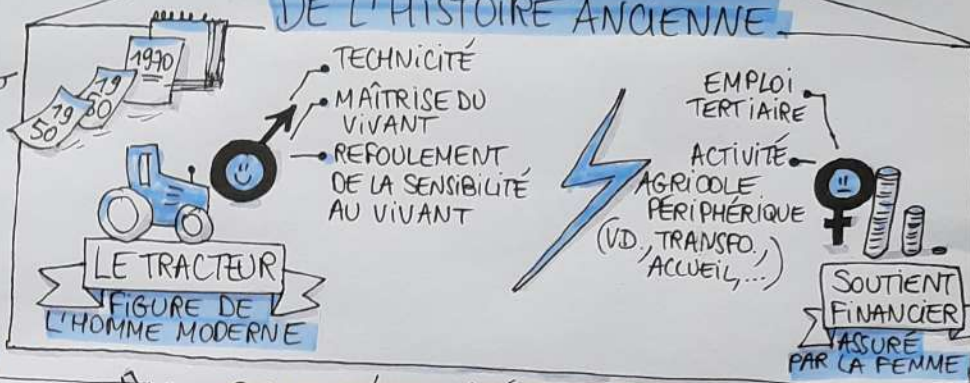 DE L'HISTOIRE ANCIENNE
1970
19
60
19
50
TECHNICITÉ
MAÎTRISE DU
VIVANT
REFOULEMENT
DE LA SENSIBILITÉ
AU VIVANT
LE TRACTEUR
FIGURE DE
L'HOMME MODERNE
EMPLOI
TERTIAIRE
ACTIVITÉ
AGRICOLE
PÉRIPHÉRIQUE
(V.D., TRANSFO.,
ACCUEIL,...)
SOUTIENT
FINANCIER
ASSURÉ
PAR LA FEMME